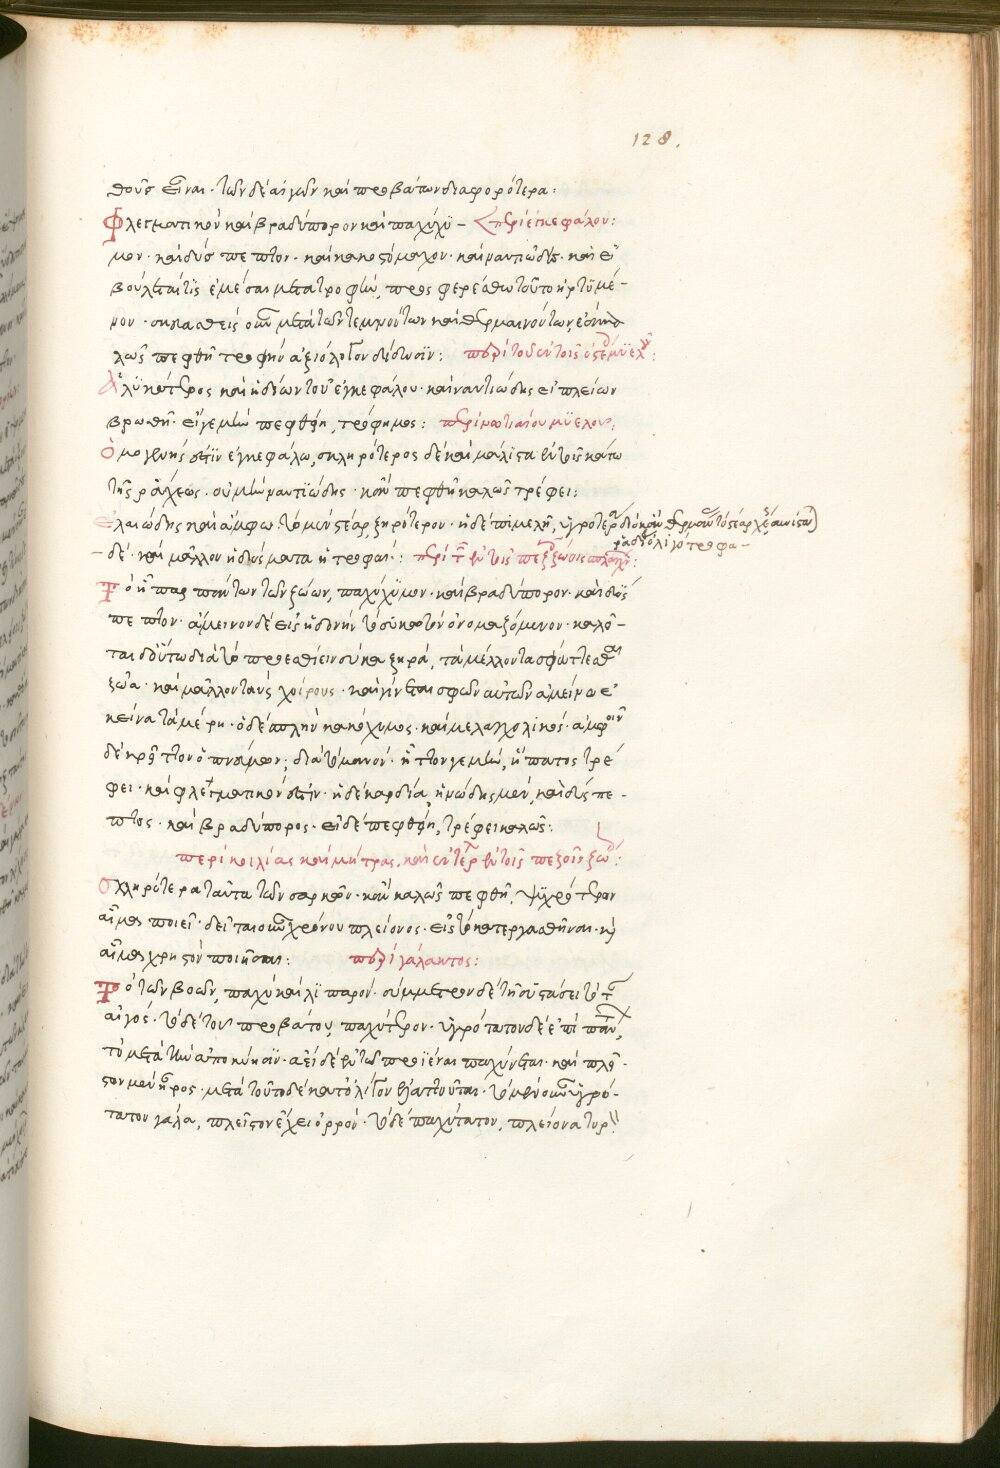 128.
θους εἶναι· τῶν δὲ αἰγῶν καὶ προβάτων διαφορότερα:
Φλεγματικὸν καὶ βραδύπορον καὶ παχύχυ – περὶ ἐγκεφάλου:
μον· καὶ δύσπεπτον· καὶ κακοστόμαχον· καὶ ναυτιῶδες· καὶ εἰ
βούλεταί τις ἐμέσαι μετὰ τροφὴν, προσφερέσθω τοῦτο ἠρτυμέ–
νον· σκευασθεὶς οὖν μετὰ τῶν τεμνόντων καὶ θερμαινόντων,
λῶς πεφθῇ τροφὴν ἀξιόλογον δίδωσιν: περὶ τοῦ ἐν τοῖς ὀστέοις μυελοῦ:
Ἁλυκώτερος καὶ ἡδίων τοῦ ἐγκεφάλου· καὶ ναυτιώδης εἰ πλείων
βρωθῇ· εἴγε μὴν πεφθείη, τρόφιμος: περὶ νωτιαίου μυελοῦ:
Ὁμογενής ἐστιν ἐγκεφάλω, σκληρότερος δὲ καὶ μάλιστα ἐν τοῖς κάτω
τῆς ῥάχεως· οὐ μὴν ναυτιώδης· κἂν πεφθῇ καλῶς τρέφει:
Ἐλαιώδης καὶ ἄμφω· τὸ μὲν στέαρ ξηρότερον· ἡ δὲ πιμελὴ, ὑγροτέρα
– δὲ· καὶ μᾶλλον ἡδύσματα ἢ τροφαί: περὶ τῶν ἐν τοῖς πεζοῖς ζώοις σπλάγχνων:
Τὸ ἧπαρ πάντων τῶν ζώων, παχύχυμον· καὶ βραδύπορον· καὶ δύσ
πεπτον· ἄμεινον δὲ εἰς ἡδονὴν τὸ συκωτὸν ὀνομαζόμενον· καλεῖ–
ται δ᾽ οὕτω διὰ τὸ προεσθίειν σῦκα ξηρά, τὰ μέλλοντα σφάττεσθαι
ζῶα· καὶ μᾶλλον τοὺς χοίρους· καὶ γίνεται σφῶν αὐτῶν ἀμείνω ἐ
κεῖνα τὰ μέρη· ὁ δὲ σπλὴν κακόχυμος· καὶ μελαγχολικός· ἀμφοῖν
δὲ κρείττων ὁ πνεύμων; διὰ τὸ μανόν· ἧττον γε μὴν, ἥπατος τρέ
φει· καὶ φλεγματικόν ἐστιν· ἡ δὲ καρδία, ἰνώδης μὲν, καὶ δύσπε–
πτος· καὶ βραδύπορος· εἰ δὲ πεφθείη, τρέφει καλῶς:
περὶ κοιλίας καὶ μήτρας, καὶ ἐντέρων ἐν τοῖς πεζοῖς ζώοις:
Σκληρότερα ταῦτα τῶν σαρκῶν· κἂν καλῶς πεφθῇ, ψυχρότερον
αἷμα ποιεῖ· δεῖται οὖν χρόνου πλείονος· εἰς τὸ κατεργασθῆναι· καὶ
αἷμα χρηστὸν ποιῆσαι: περὶ γάλακτος:
Τὸ τῶν βοῶν, παχὺ καὶ λιπαρόν· σύμμετρον δὲ τῇ συστάσει τὸ τῆς
αἰγός· τὸ δὲ τοῦ προβάτου, παχύτερον· ὑγρότατον δὲ ἐπὶ πάντων,
τὸ μετὰ τὴν ἀποκύησιν· ἀεὶ δὲ ἐν τῶ προϊέναι παχύνεται· καὶ
μετὰ τοῦτο δὲ κατ᾽ ὀλίγον ἐλαττοῦται· τὸ μὲν οὖν ὑγρό–
τατον γάλα, πλεῖστον ἔχει ὀρρόν· τὸ δὲ παχύτατον, πλείονα τυρ